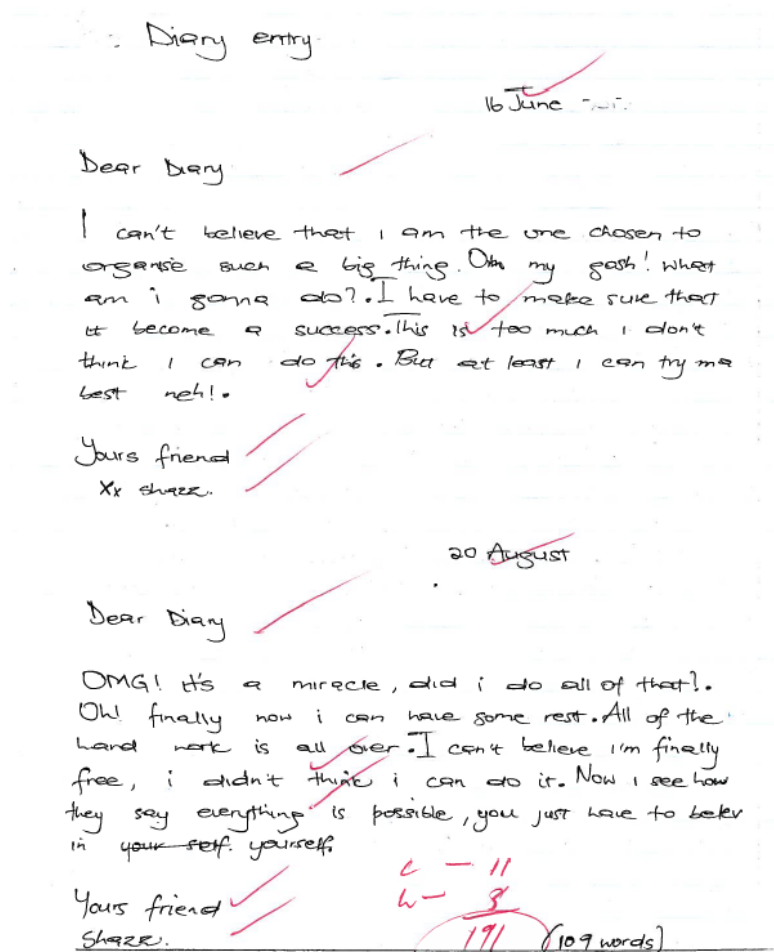 Diary entry
16 June
Dear Diary
I can't believe that i am the one chosen to
organise such a big thing. Ohh my gosh! what
am i gonna do?. I have to make sure that
it become a success. This is too much i don't
think i can do this. But at least i can try ma
best neh!.
Yours friend
Xx shazz.
20 August
Dear Diary
OMG! it's a miracle, did i do all of that!.
Oh! finally now i can have some rest. All of the
hard work is all over. I can't believe i'm finally
free, i didn't think i can do it. Now i see how
they say everything is possible, you just have to
in your self. yourself.
c – 11
Yours friend
Shazz.
(109 words)